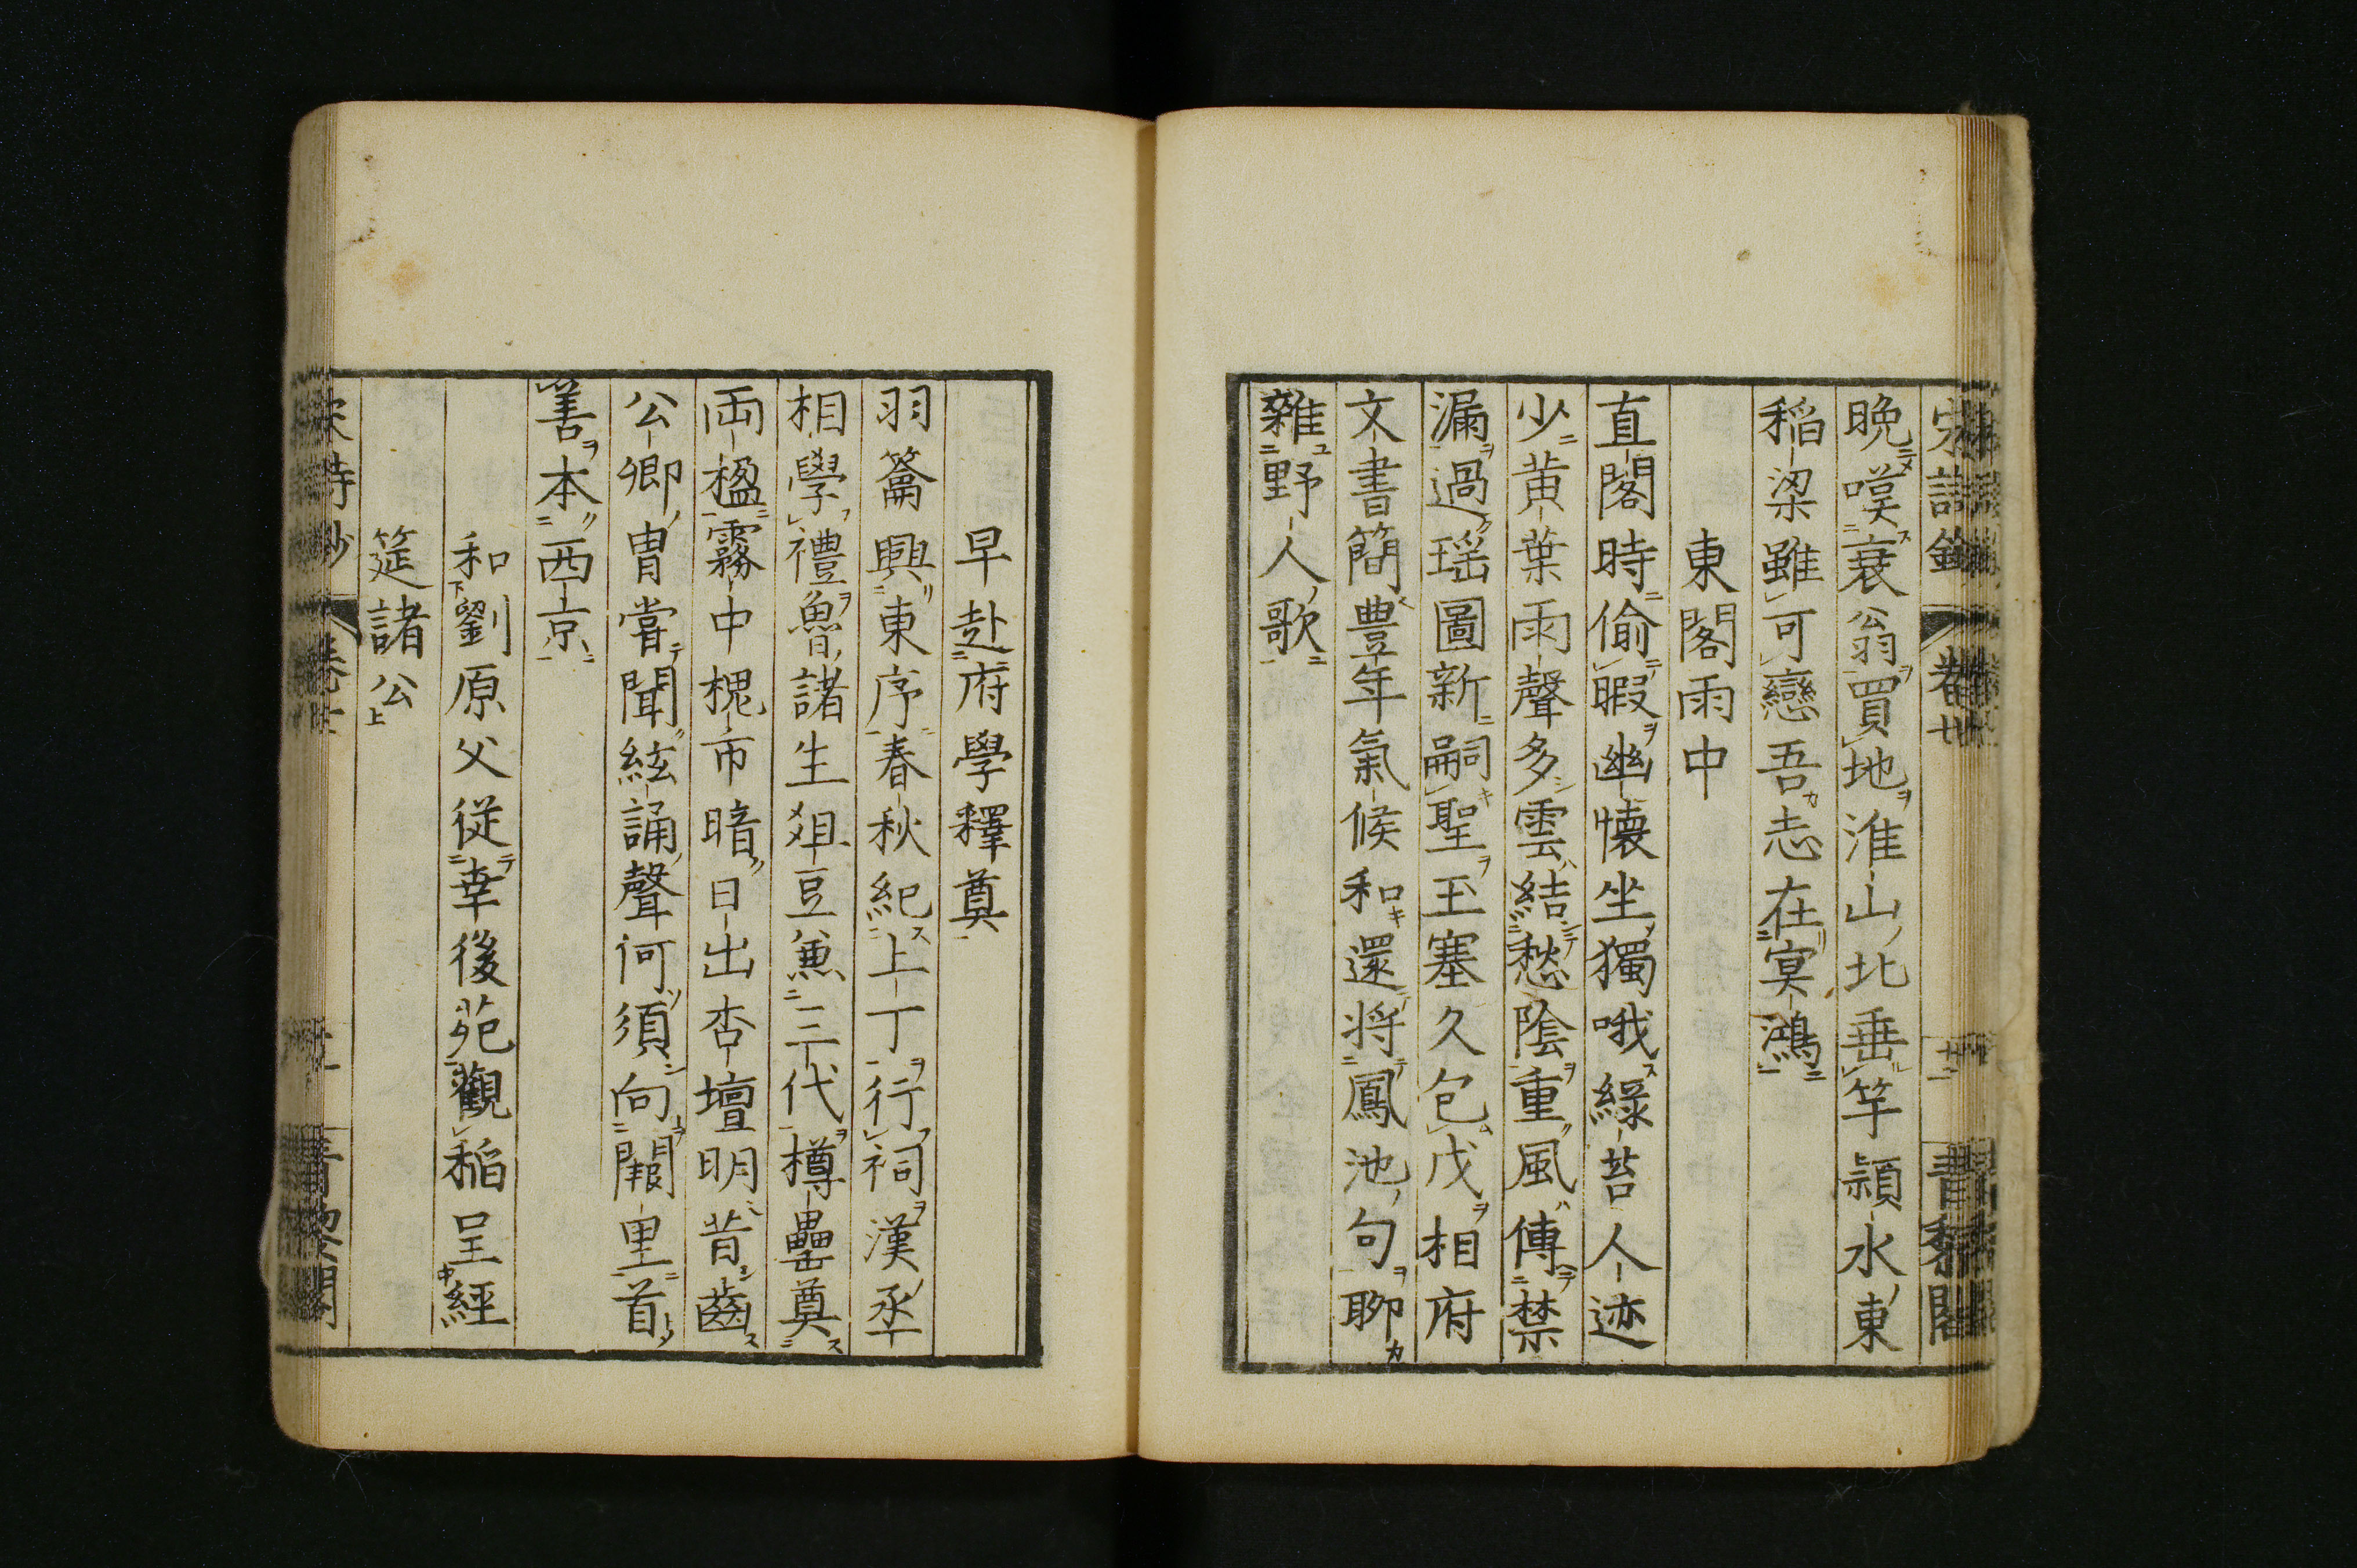 晩嘆衰翁買地淮山北垂竿頴水東
稻粱雖可戀吾志在冥鴻
東閣雨中
直閣時偷暇幽懷坐獨哦綠苔人迹
少黃葉雨聲多雲結愁陰重風傳禁
漏過瑶圖新嗣聖玉塞久包戈相府
文書簡豐年氣候和還將鳳池句聊
雜野人歌
早赴府學釋奠
羽籥興東序春秋紀上丁行祠漢丞
相學禮魯諸生俎豆兼三代樽罍奠
兩楹霧中槐市暗日出杏壇明昔齒
公卿胄嘗聞絃誦聲何須向闕里首
善本西京
和劉原父從幸後苑觀稻呈經
筵諸公